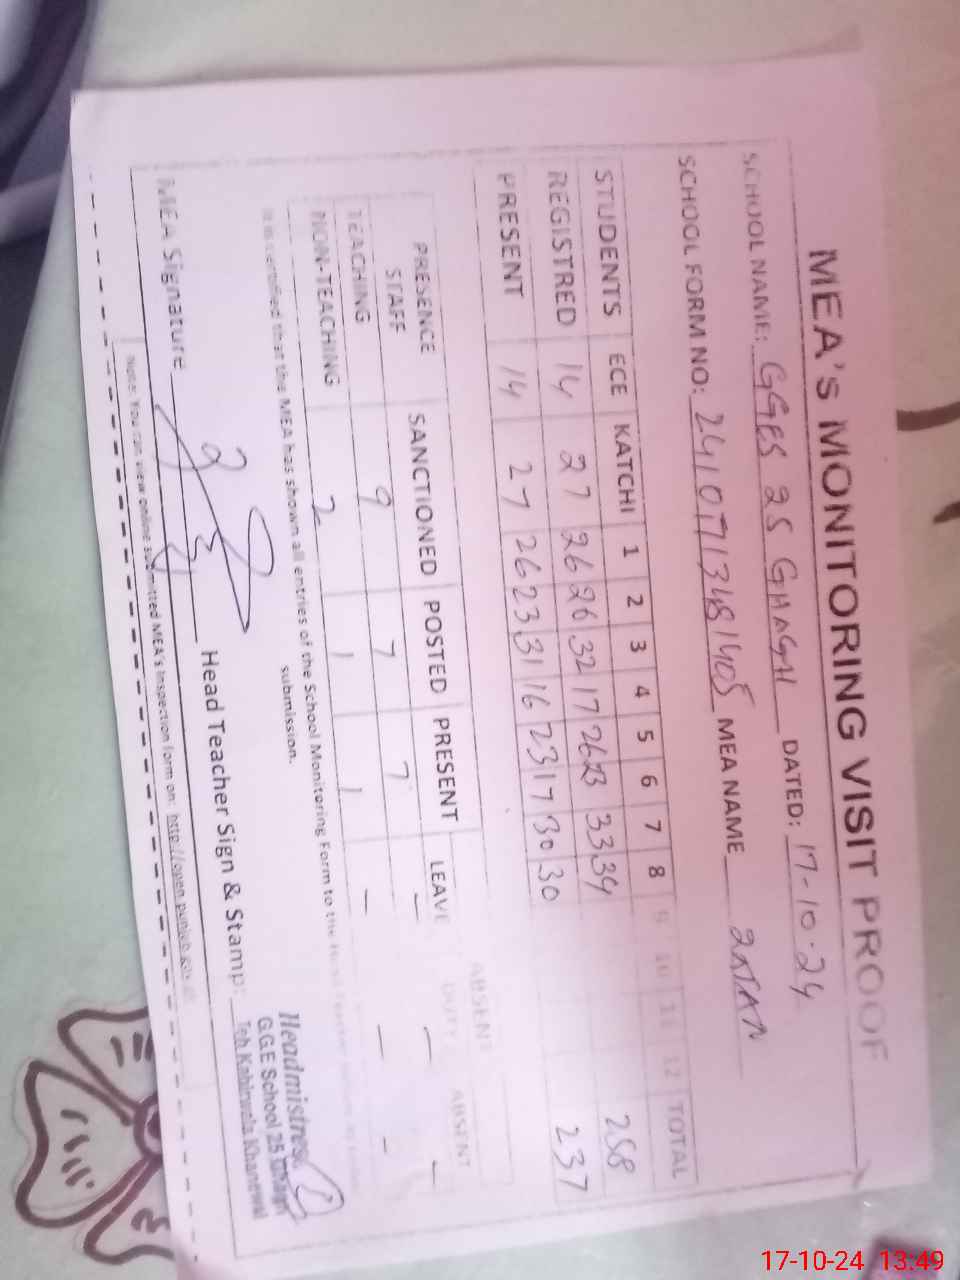 MEA's MONITORING VISIT PROOF
SCHOOL NAME: GGES 25 GHAGH DATED: 17-10-24
SCHOOL FORM NO: MEA NAME
STUDENTS ECE KATCHI 1 2 3 4 5 6 7 8 9 10 11 12 TOTAL
REGISTRED 14 27 26 26 32 17 26 23 33 34 258
PRESENT 14 27 26 23 31 16 23 17 30 30 237
PRESENCE SANCTIONED POSTED PRESENT LEAVE ABSENT DUTY ABSENT
STAFF
TEACHING 9 7 7 - - -
NON-TEACHING 2 1 1 - - -
It is certified that the MEA has shown all entries of the School Monitoring Form to the Head Teacher
submission.
MEA Signature Head Teacher Sign & Stamp:
Headmistress
G.G.E School 25 Ghagh
Teh Kabirwala Khanewal
Note: You can view online submitted MEA's Inspection form on: http://open.punjab.gov.pk
17-10-24 13:49